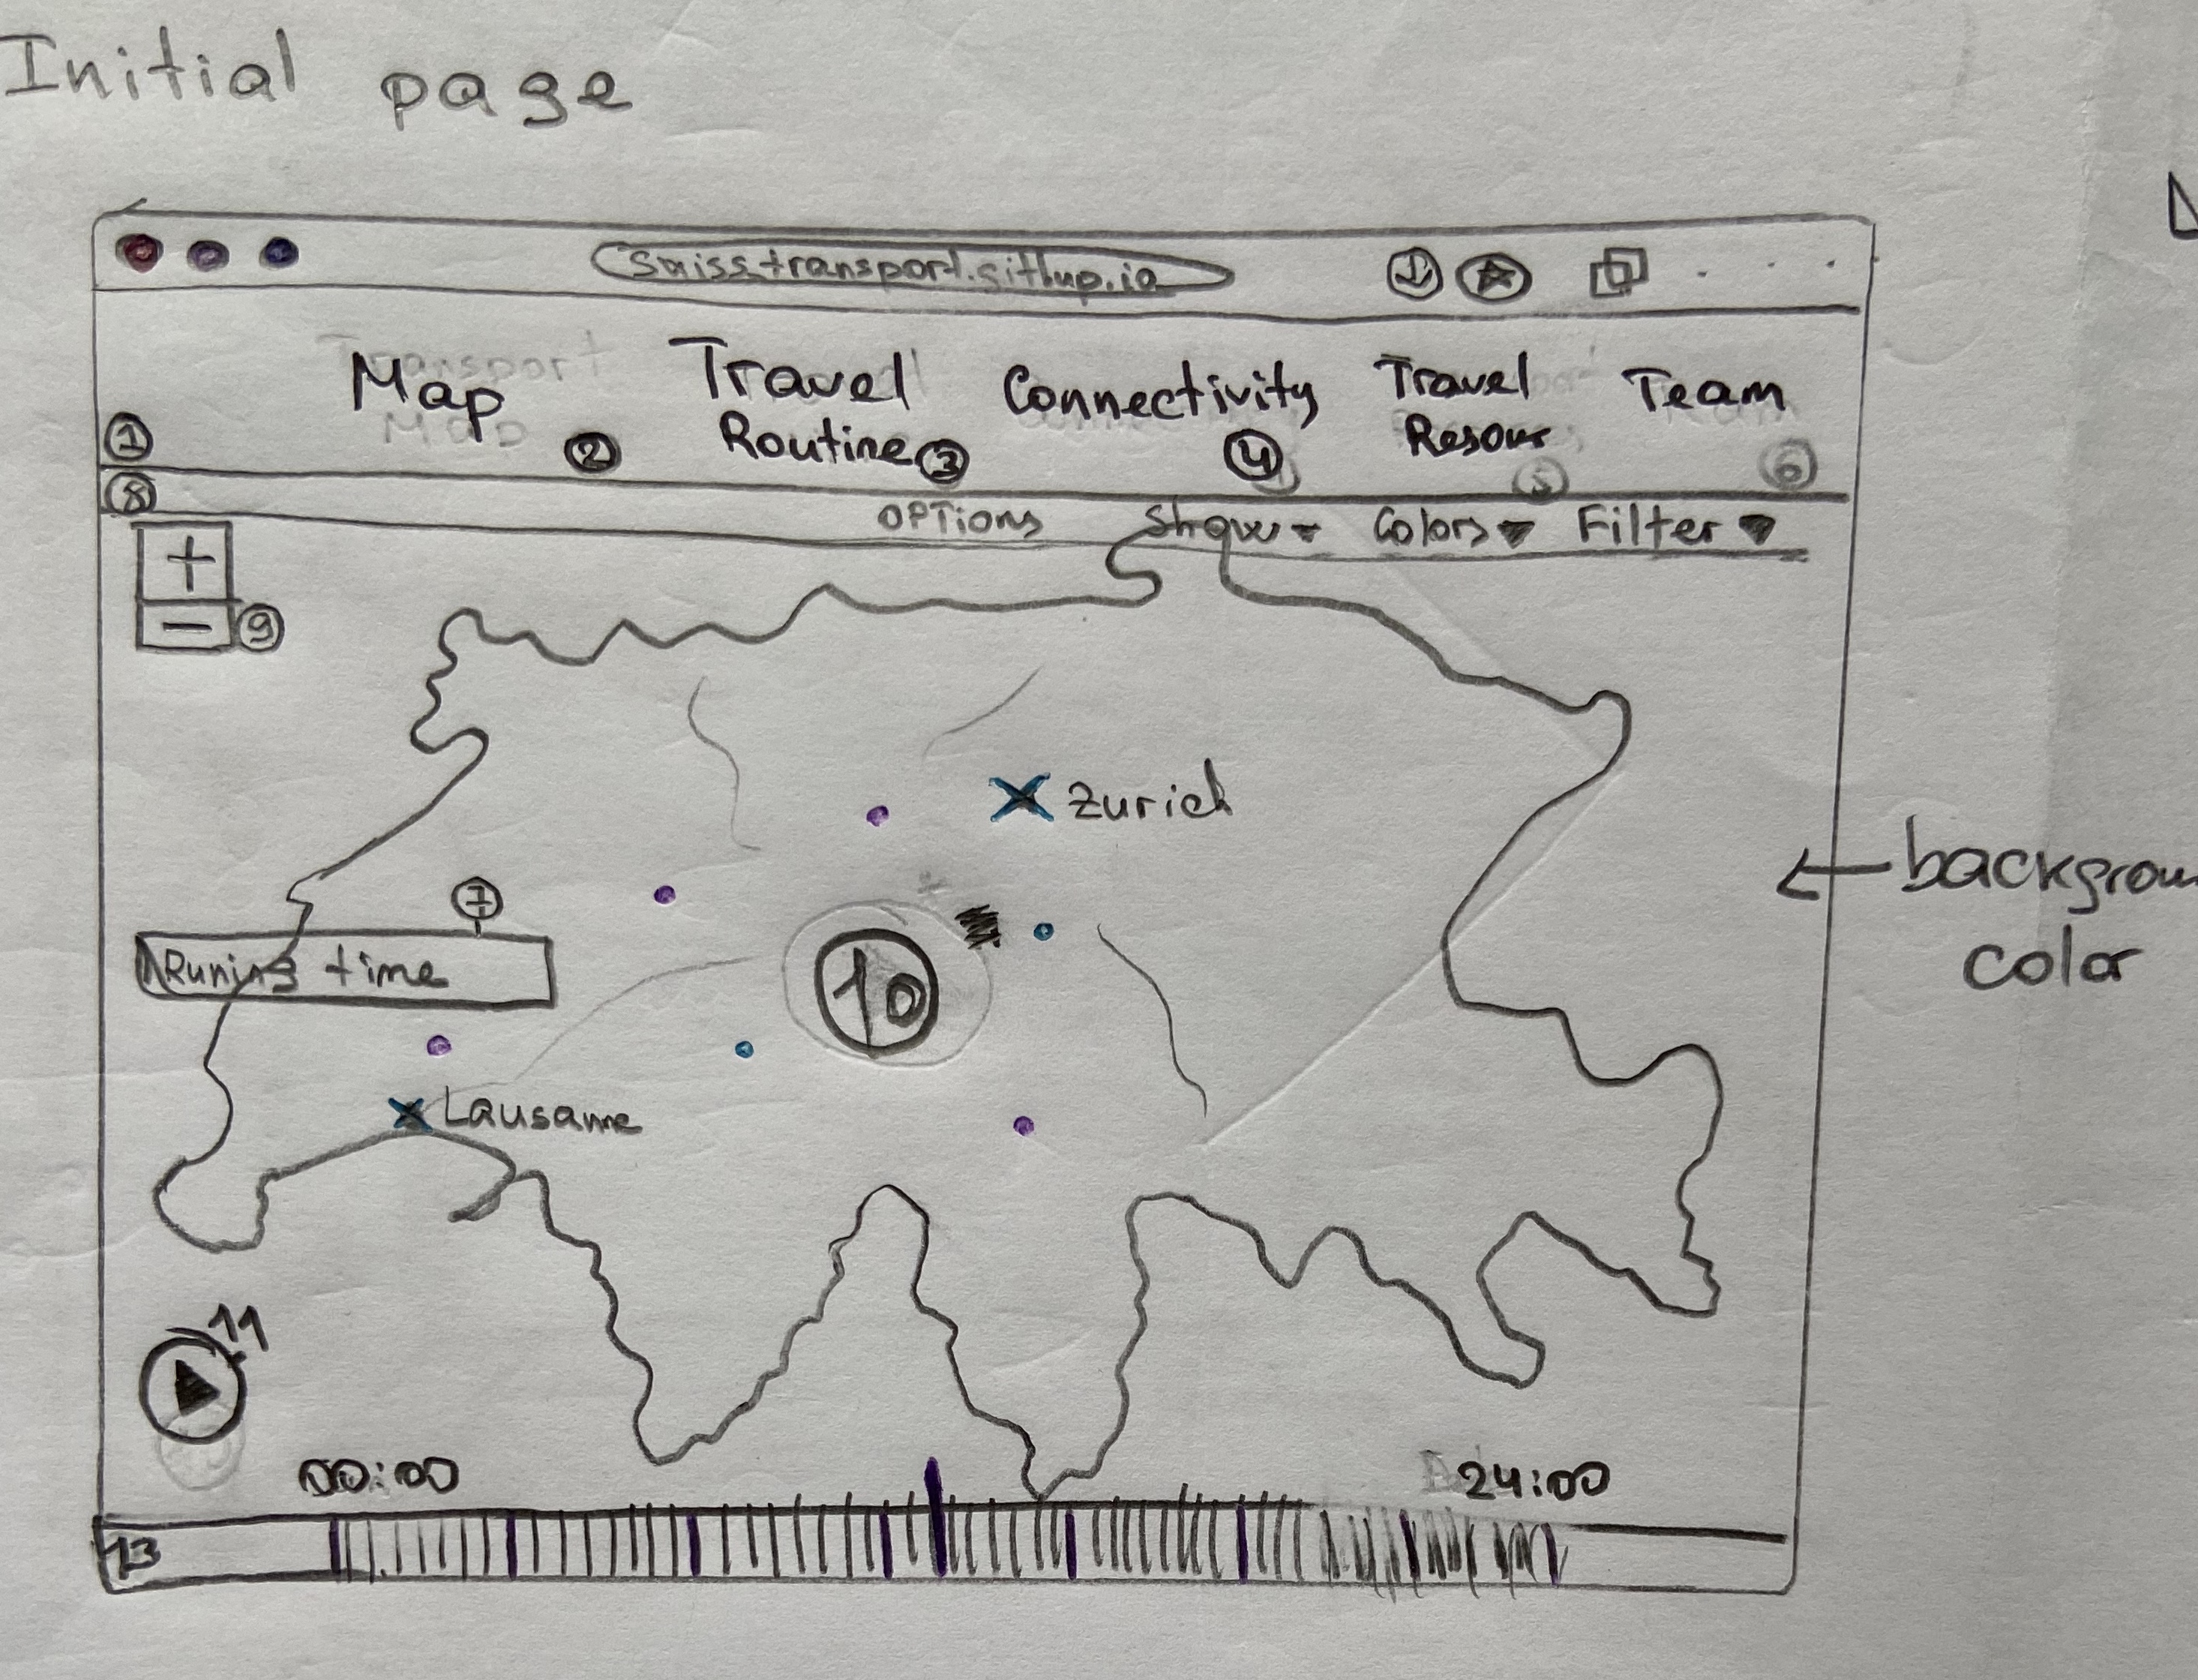 Initial page
swisstransport.githup.io
Map
Travel
Routine
Connectivity
Travel
Resour
Team
1
2
3
4
5
6
8
OPTiONS
Show
Colors
Filter
+
−
9
Zurich
7
Runing time
10
Lausanne
background
color
11
00:00
24:00
13